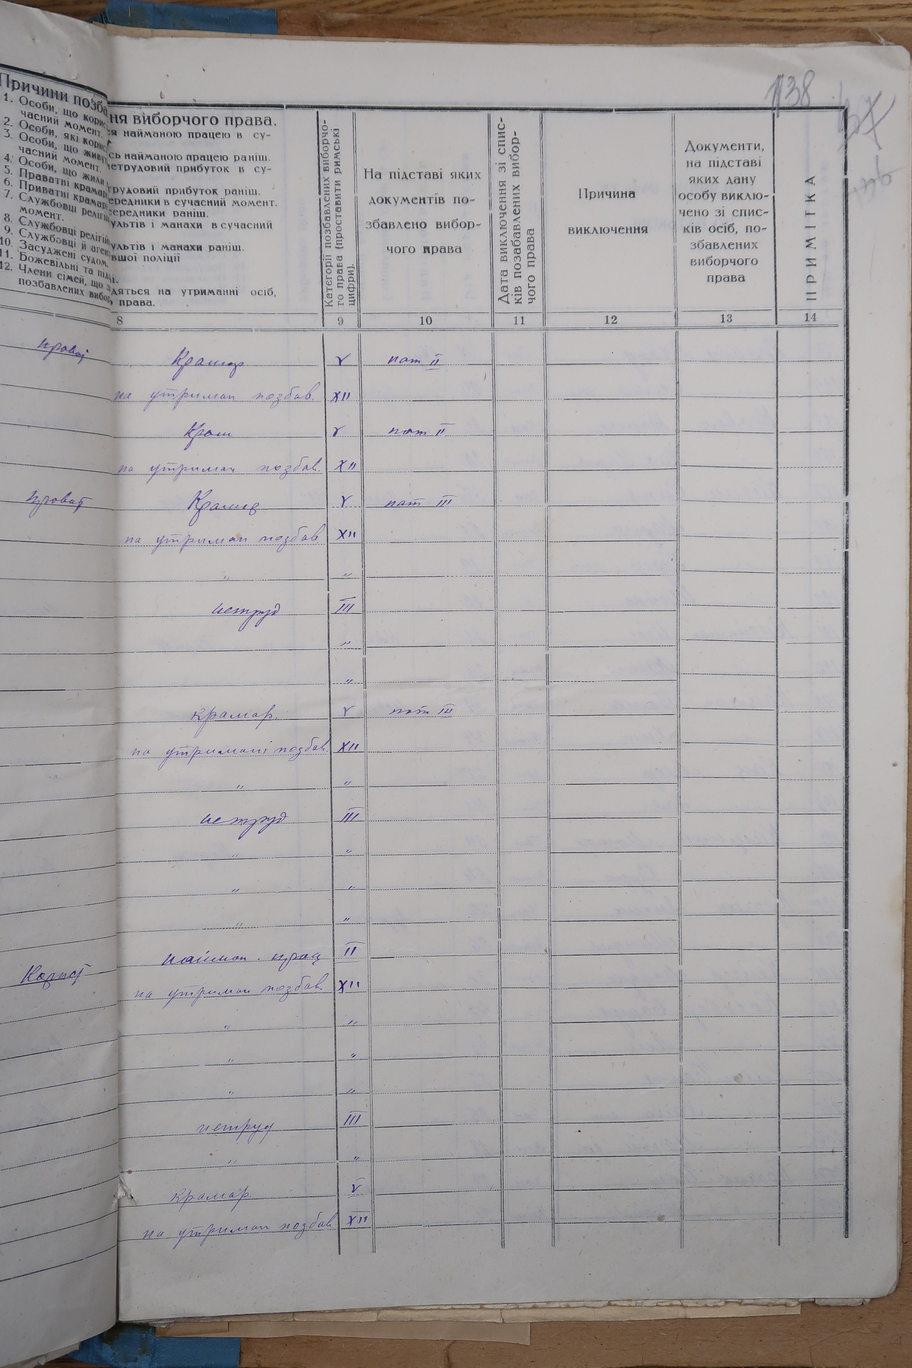 138
Причини позба
ня виборчого права.
1. Особи, що корис
ся найманою працею в су-
часний момент.
2. Особи, які корис
сь найманою працею раніш.
3. Особи, що живу
нетрудовий прибуток в су-
часний момент.
4. Особи, що жили
трудовий прибуток раніш.
5. Праватні крамар
ередники в сучасний момент.
6. Приватні крамар
ередники раніш.
7. Службовці релігій
ультів і манахи в сучасний
момент.
8. Службовці релігій
ультів і манахи раніш.
9. Службовці й аген
вшої поліції
10. Засуджені судом.
11. Божевільні та під
12. Члени сімей, що
дяться на утриманні осіб,
позбавлених вибор
права.
Категорії позбавлених виборчо-
го права (проставити римські
цифри).
На підставі яких
документів по-
збавлено вибор-
чого права
Дата виключення зі спис-
ків позабавлених вибор-
чого права
Причина
виключення
Документи,
на підставі
яких дану
особу виклю-
чено зі спис-
ків осіб, по-
збавлених
виборчого
права
ПРИМІТКА
8 9 10 11 12 13 14
Крамар V пат II
на утриман позбав. XII
Крам V пат II
на утриман позбав. XII
Крамар V пат III
на утриман позбав XII
" "
нетруд III
"
"
крамар. V пат III
на утримані позбав. XII
" "
нетруд III
" "
" "
" "
найман. прац II
на утриман позбав. XII
" "
" "
" "
нетруд III
" "
крамар. V
на утриман позбав. XII